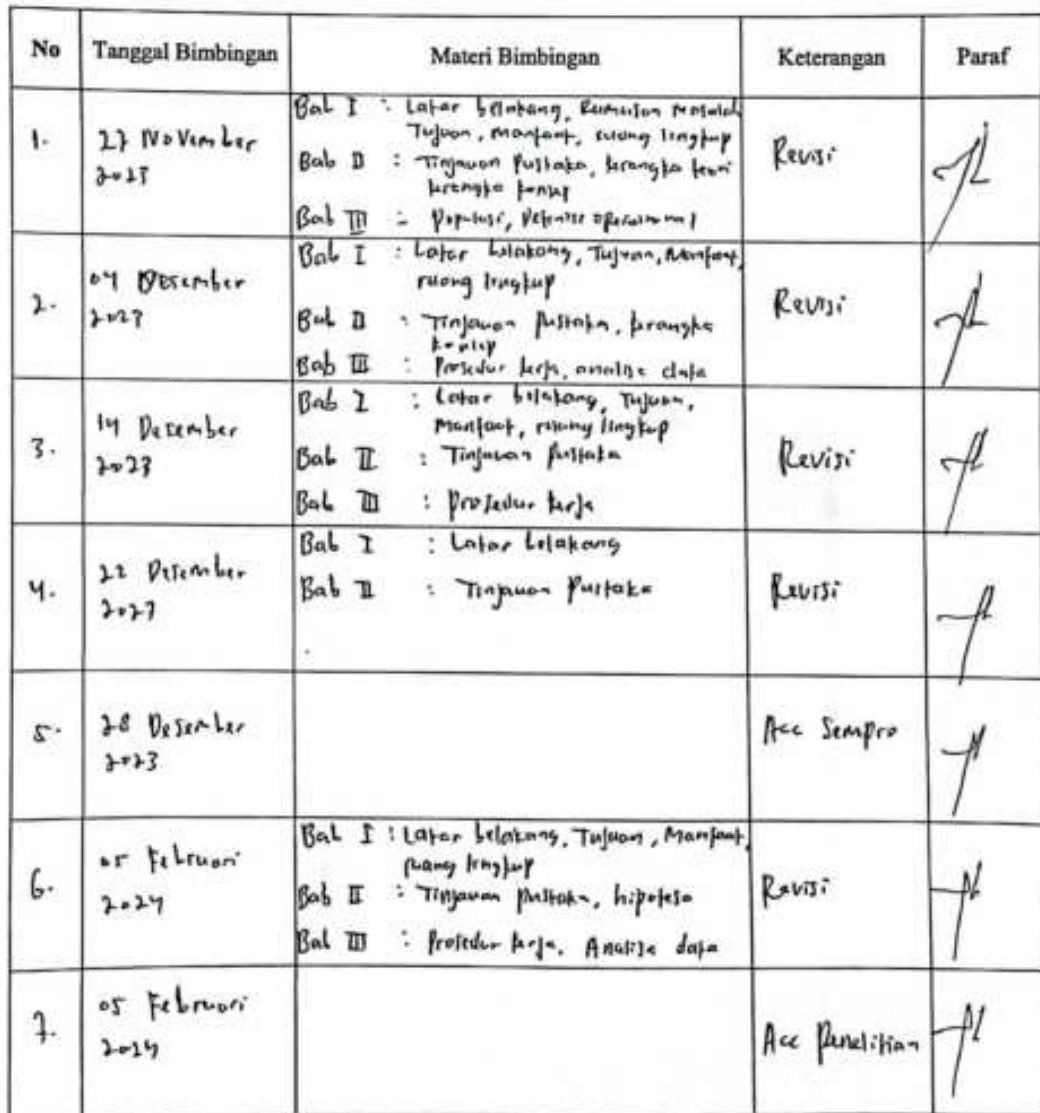 No Tanggal Bimbingan Materi Bimbingan Keterangan Paraf
1. 27 November 2023 Revisi
Bab I : Latar belakang, Rumusan masalah
Tujuan, Manfaat, ruang lingkup
Bab II : Tinjauan Pustaka, kerangka teori
kerangka konsep
Bab III : Populasi, Definisi operasional
2. 04 Desember 2023 Revisi
Bab I : Latar belakang, Tujuan, Manfaat,
ruang lingkup
Bab II : Tinjauan Pustaka, kerangka
konsep
Bab III : Prosedur kerja, analisa data
3. 14 Desember 2023 Revisi
Bab I : Latar belakang, Tujuan,
Manfaat, ruang lingkup
Bab II : Tinjauan Pustaka
Bab III : Prosedur kerja
4. 22 Desember 2023 Revisi
Bab I : Latar belakang
Bab II : Tinjauan Pustaka
5. 28 Desember 2023 Acc Sempro
6. 05 Februari 2024 Revisi
Bab I : Latar belakang, Tujuan, Manfaat,
ruang lingkup
Bab II : Tinjauan pustaka, hipotesa
Bab III : Prosedur kerja, Analisa data
7. 05 Februari 2024 Acc Penelitian